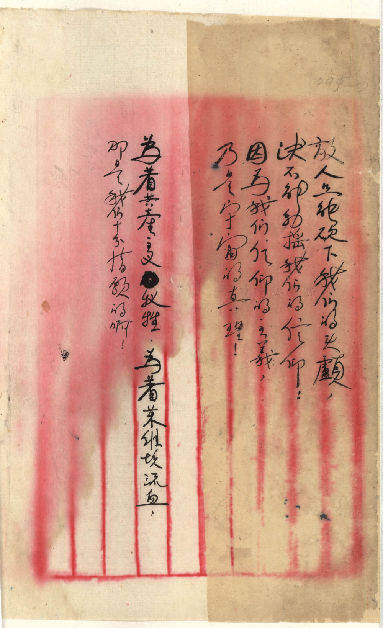 敵人只能砍下我们的头顱，
决不能動摇我们的信仰！
因為我们信仰的主義，
乃是宇宙的真理！
為着共產主义牺牲，為着苏维埃流血，
那是我们十分情願的啊！